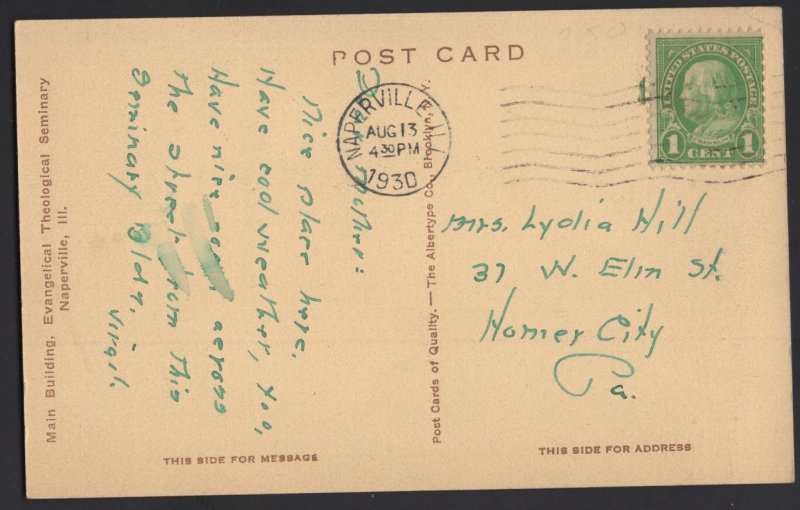 POST CARD
Main Building, Evangelical Theological Seminary
Naperville, Ill.
Mother:
Nice place here.
Have cool weather, too,
Have nice across
the street from this
Seminary Bldg.
Virgil.
THIS SIDE FOR MESSAGE
Post Cards of Quality. — The Albertype Co., Brooklyn, Y.
NAPERVILLE ILL
AUG 13
4 30 PM
1930
UNITED STATES POSTAGE
FRANKLIN
1 CENT 1
Mrs. Lydia Hill
37 W. Elm St.
Homer City
Pa.
THIS SIDE FOR ADDRESS